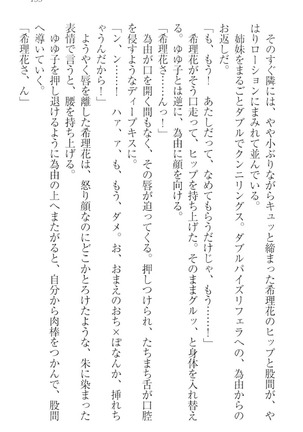 133
そのすぐ隣には、やや小ぶりながらキュッと締まった希理花のヒップと股間が、や
はりローションにまみれて並んでいる。
姉妹をまるごとダブルでクンニリングス。ダブルパイズリフェラへの、為由からの
お返しだ。
「も、もう！　あたしだって、なめてもらうだけじゃ、もう……！」
希理花がそう口走って、ヒップを持ち上げた。そのままグルッ、と身体を入れ替え
る。ゆゆ子とは逆に、為由に顔を向ける。
「希理花さ……んっ！」
為由が口を開く間もなく、その唇が迫ってくる。押しつけられ、たちまち舌が口腔
を侵すようなディープキスに。
「ン、ン……！　ハァ、ァ、も、もう、ダメ。お、おまえのおち×ぽなんか、挿れち
ゃうんだから！」
ようやく唇を離した希理花は、怒り顔なのにどこかとろけたような、朱に染まった
表情で言うと、腰を持ち上げる。
ゆゆ子を押し退けるように為由の上へまたがると、自分から肉棒をつかんで、股間
へ導いていく。
「希理花、さん」